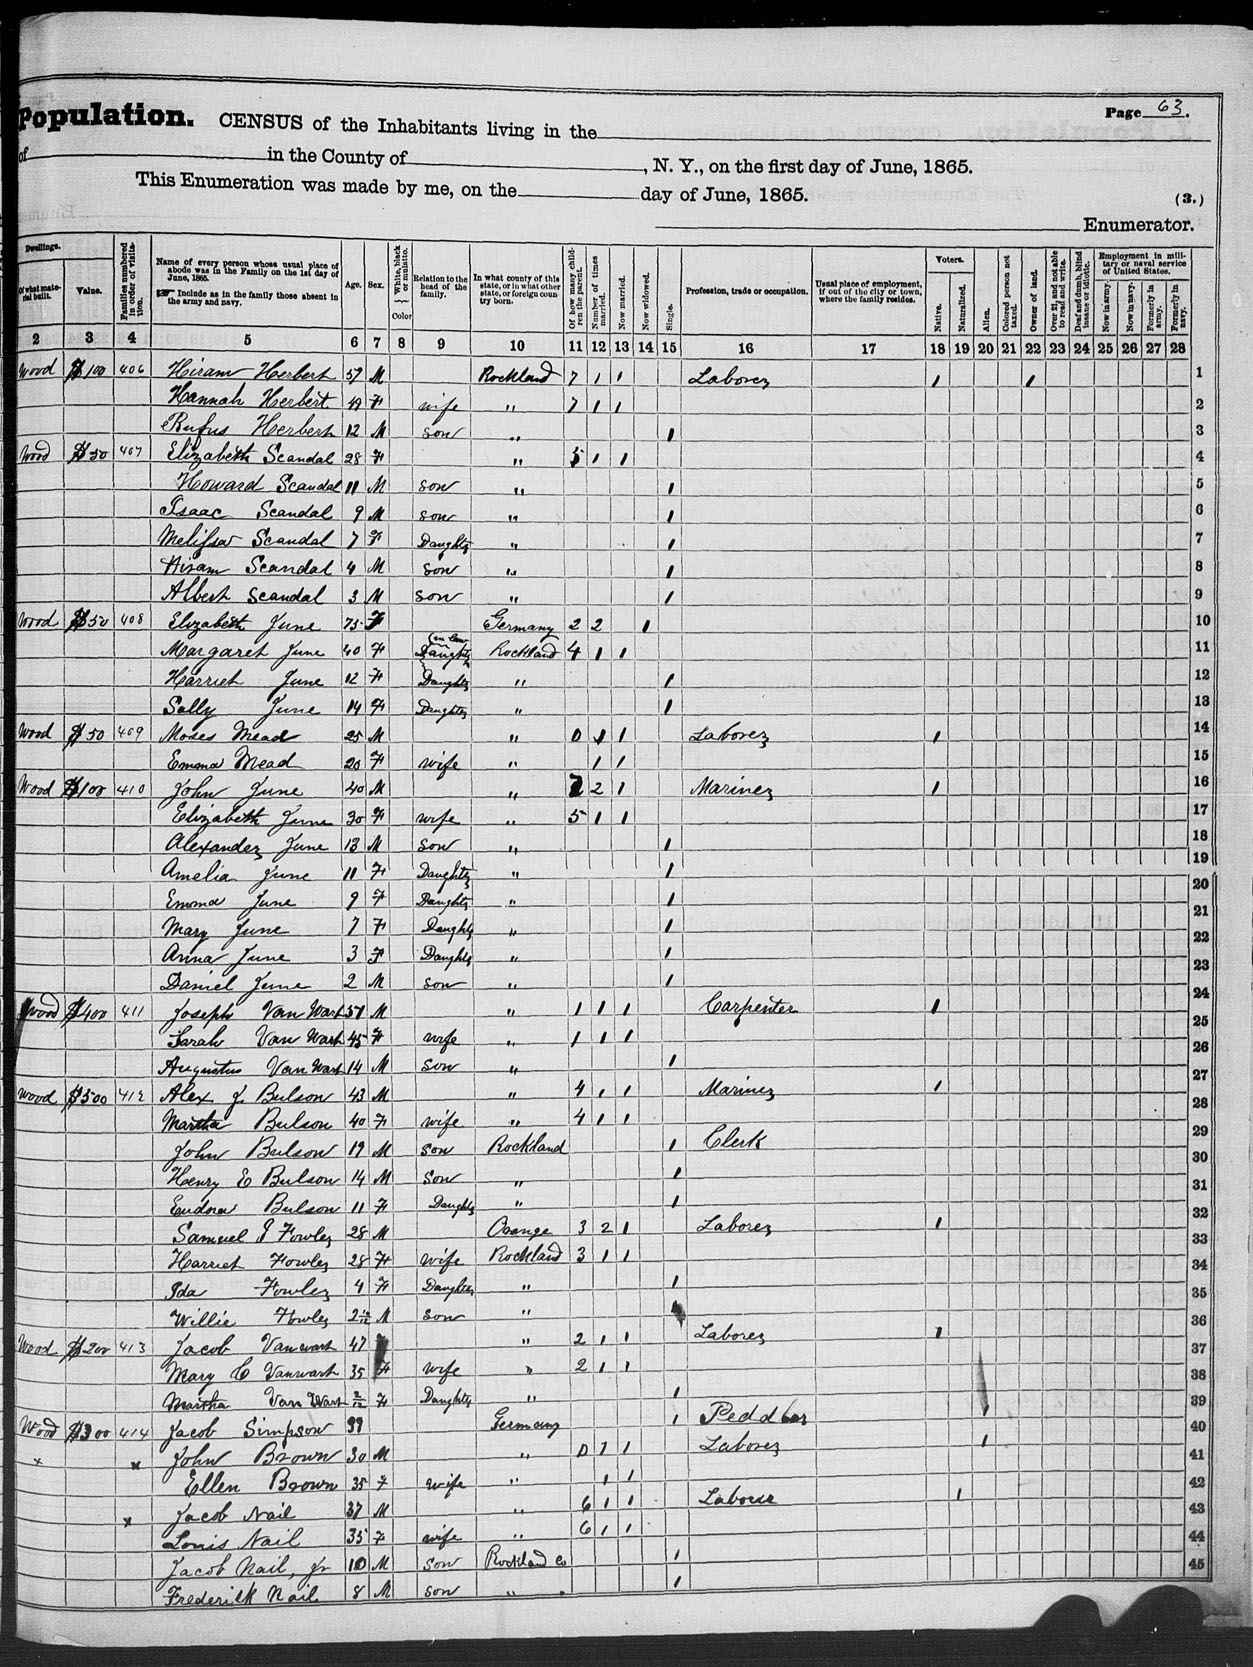 Page 63.
Population. CENSUS of the Inhabitants living in the
of in the County of , N. Y., on the first day of June, 1865.
This Enumeration was made by me, on the day of June, 1865. (3.)
Enumerator.
Dwellings. Of what material built. Value. Families numbered in order of visitation. Name of every person whose usual place of abode was in the Family on the 1st day of June, 1865. Include as in the family those absent in the army and navy. Age. Sex. White, black or mulatto. Color Relation to the head of the family. In what county of this state, or in what other state, or foreign country born. Of how many children the parent. Number of times married. Now married. Now widowed. Single. Profession, trade or occupation. Usual place of employment, if out of the city or town, where the family resides. Voters. Native. Naturalized. Alien. Colored person not taxed. Owner of land. Over 21, and not able to read and write. Deaf and dumb, blind insane or idiotic. Employment in military or naval service of United States. Now in army. Now in navy. Formerly in army. Formerly in navy.
2 3 4 5 6 7 8 9 10 11 12 13 14 15 16 17 18 19 20 21 22 23 24 25 26 27 28
Wood $100 406 Hiram Herbert 57 M Rockland 7 1 1 Laborer 1 1 1
Hannah Herbert 49 F wife " 7 1 1 2
Rufus Herbert 12 M son " 1 3
Wood $50 407 Elizabeth Scandal 28 F " 5 1 1 4
Howard Scandal 11 M son " 1 5
Isaac Scandal 9 M son " 1 6
Melissa Scandal 7 F Daughter " 1 7
Hiram Scandal 4 M son " 1 8
Albert Scandal 3 M son " 1 9
Wood $50 408 Elizabeth June 75 F Germany 2 2 1 10
Margaret June 40 F Daughter (in law Rockland 4 1 1 11
Harriet June 12 F Daughter " 1 12
Sally June 14 F Daughter " 1 13
Wood $50 409 Moses Mead 25 M " 0 1 1 Laborer 1 14
Emma Mead 20 F wife " 1 1 15
Wood $100 410 John June 40 M " 2 1 Mariner 1 16
Elizabeth June 30 F wife " 5 1 1 17
Alexander June 13 M son " 1 18
Amelia June 11 F Daughter " 1 19
Emma June 9 F Daughter " 1 20
Mary June 7 F Daughter " 1 21
Anna June 3 F Daughter " 1 22
Daniel June 2 M son " 1 23
Wood $400 411 Joseph Van Wart 51 M " 1 1 1 Carpenter 1 24
Sarah Van Wart 45 F wife " 1 1 1 25
Augustus Van Wart 14 M son " 1 26
Wood $500 412 Alex J. Bulson 43 M " 4 1 1 Mariner 1 27
Martha Bulson 40 F wife " 4 1 1 28
John Bulson 19 M son Rockland 1 Clerk 29
Henry E Bulson 14 M son " 1 30
Eudora Bulson 11 F Daughter " 1 31
Samuel J Fowler 28 M Orange 3 2 1 Laborer 1 32
Harriet Fowler 28 F wife Rockland 3 1 1 33
Ida Fowler 4 F Daughter " 1 34
Willie Fowler 2 M son " 1 35
Wood $200 413 Jacob Vanwart 47 " 2 1 1 Laborer 1 36
Mary C Vanwart 35 F wife " 2 1 1 37
Martha Van Wart 2/12 F Daughter " 1 38
Wood $300 414 Jacob Simpson Germany 1 Peddler 39
x x John Brown 30 M " 0 1 1 Laborer 1 40
Ellen Brown 35 F wife " 1 1 41
x Jacob Nail 37 M " 6 1 1 Laborer 1 42
Louis Nail 35 F wife " 6 1 1 43
Jacob Nail, Jr 10 M son Rockland Co 1 44
Frederick Nail 8 M son " 1 45